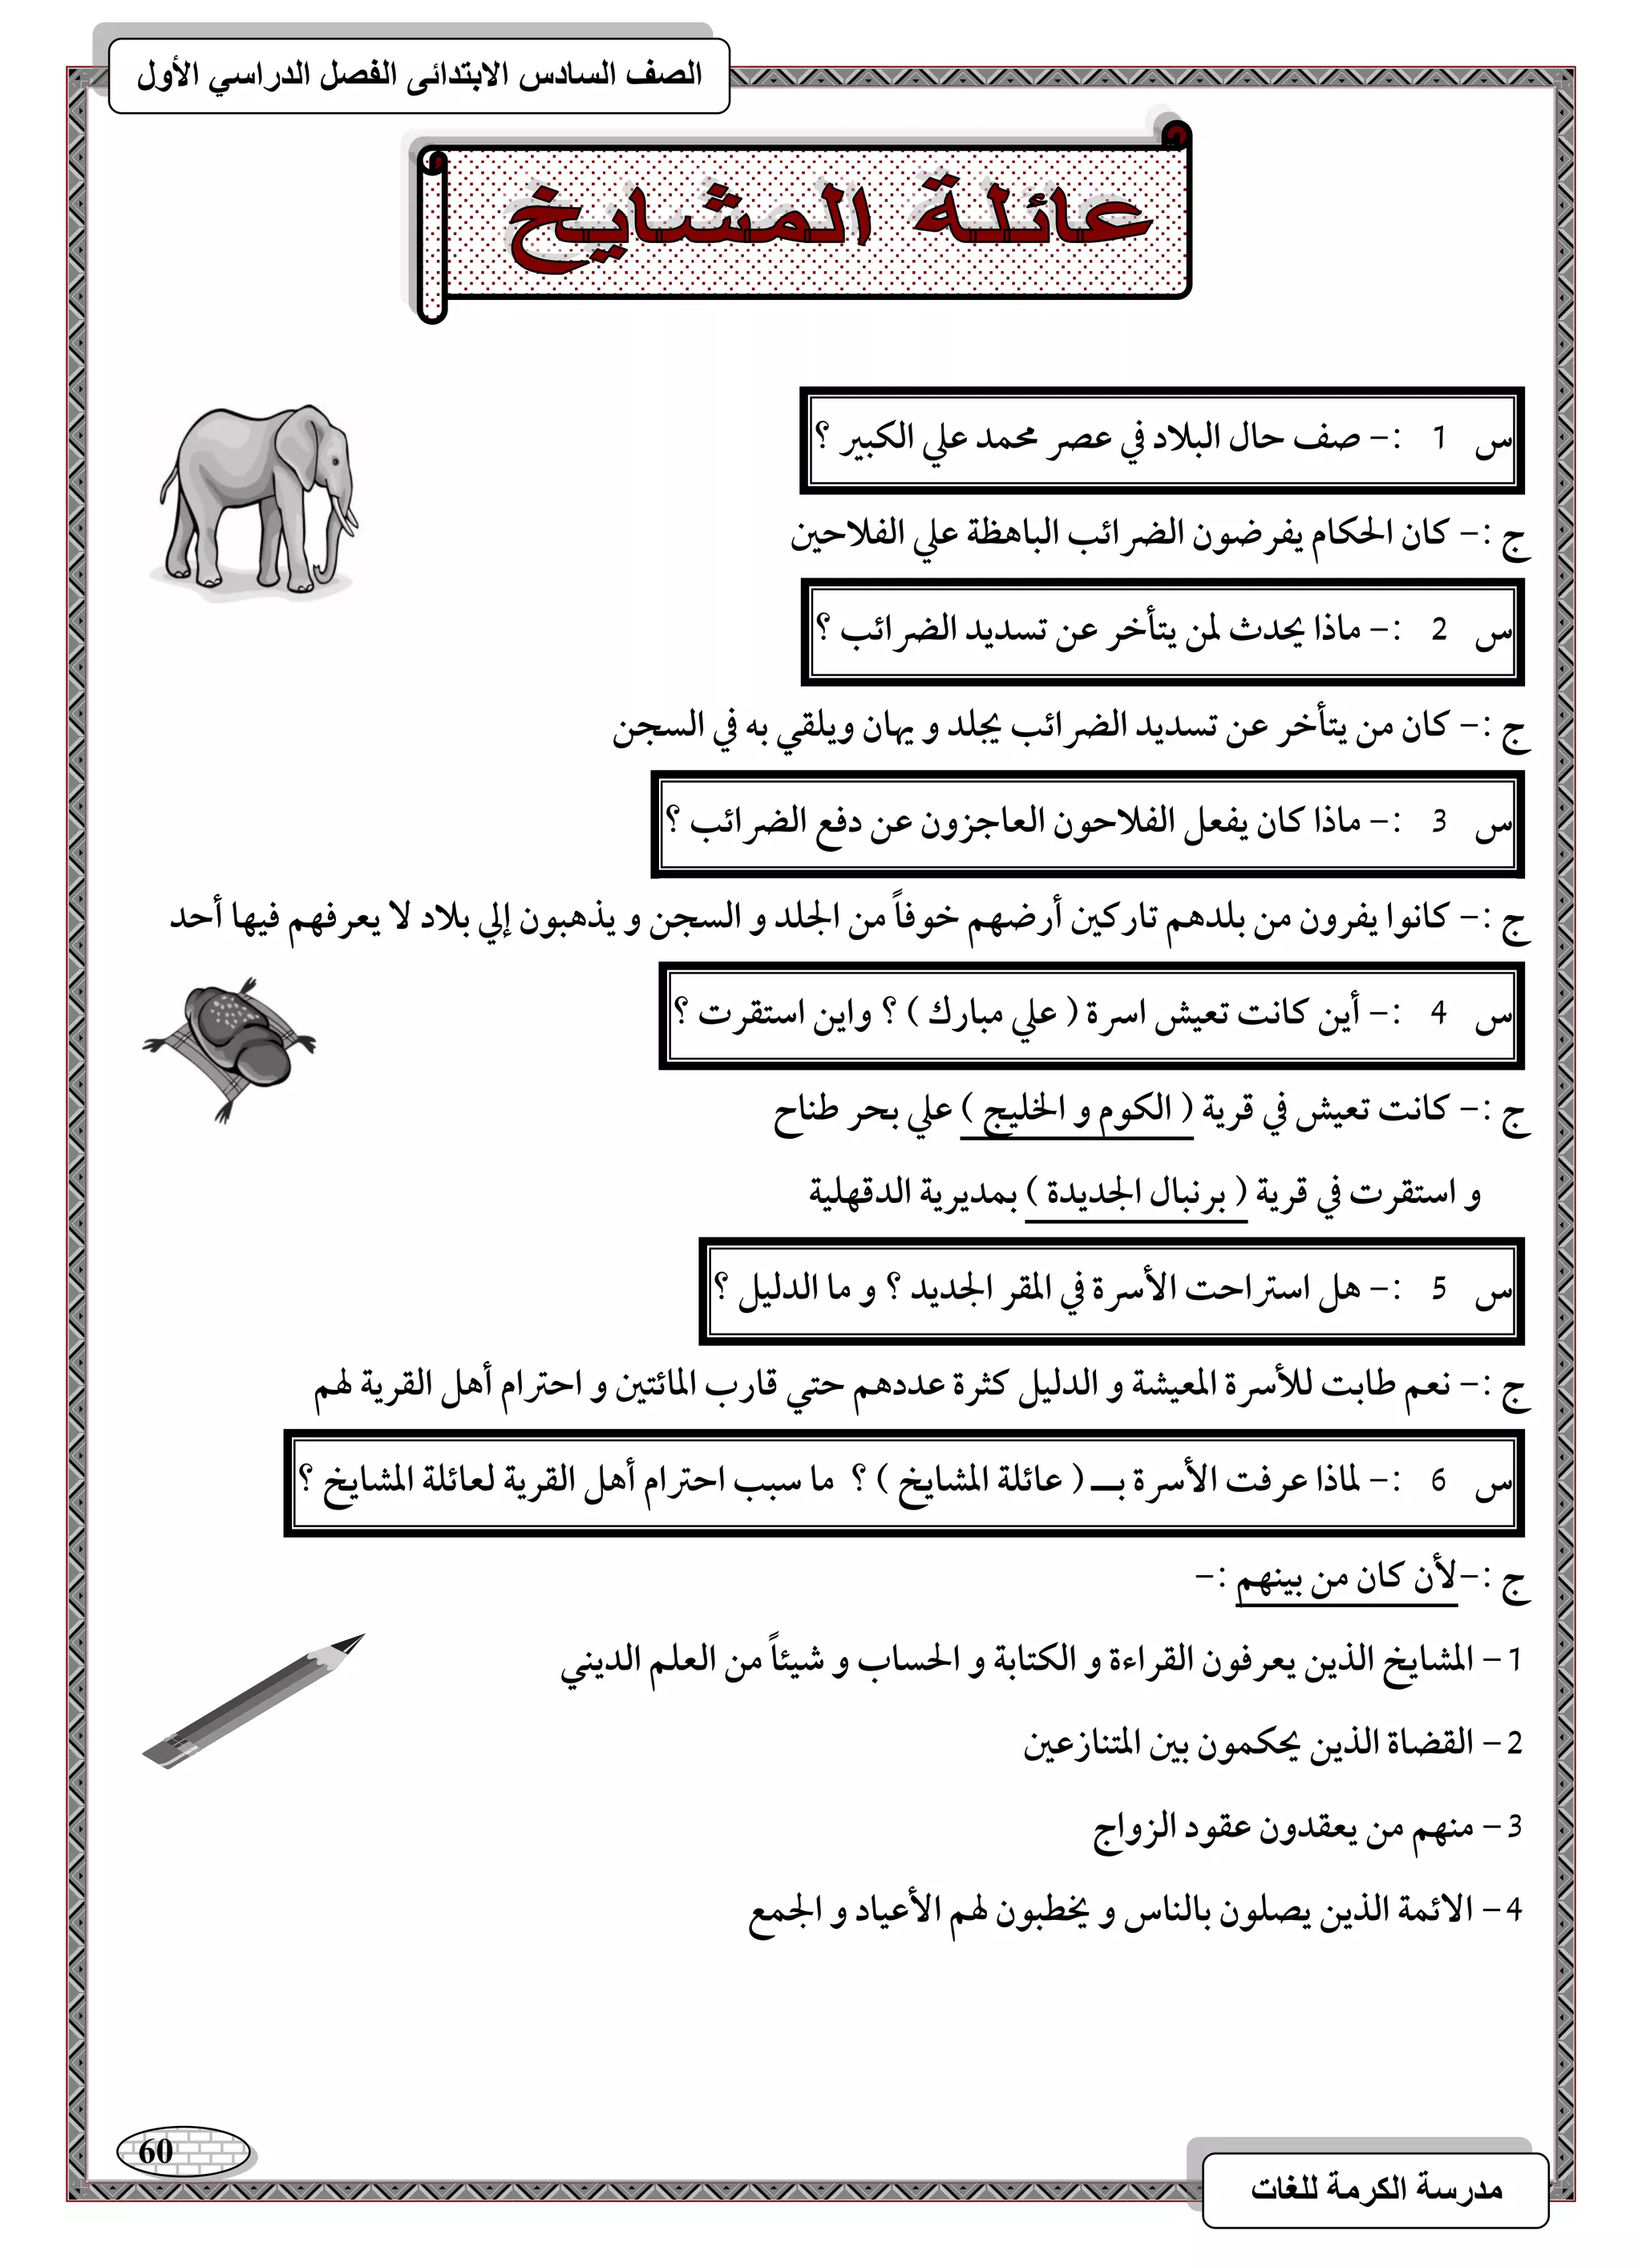 الصف السادس الابتدائى الفصل الدراسي الأول
عائلة المشايخ
س 1 :- صف حال البلاد في عصر محمد علي الكبير ؟
ج :- كان الحكام يفرضون الضرائب الباهظة علي الفلاحين
س 2 :- ماذا يحدث لمن يتأخر عن تسديد الضرائب ؟
ج :- كان من يتأخر عن تسديد الضرائب يجلد و يهان ويلقي به في السجن
س 3 :- ماذا كان يفعل الفلاحون العاجزون عن دفع الضرائب ؟
ج :- كانوا يفرون من بلدهم تاركين أرضهم خوفاً من الجلد و السجن و يذهبون إلي بلاد لا يعرفهم فيها أحد
س 4 :- أين كانت تعيش اسرة ( علي مبارك ) ؟ واين استقرت ؟
ج :- كانت تعيش في قرية ( الكوم و الخليج ) علي بحر طناح
و استقرت في قرية ( برنبال الجديدة ) بمديرية الدقهلية
س 5 :- هل استراحت الأسرة في المقر الجديد ؟ و ما الدليل ؟
ج :- نعم طابت للأسرة المعيشة و الدليل كثرة عددهم حتي قارب المائتين و احترام أهل القرية لهم
س 6 :- لماذا عرفت الأسرة بــ ( عائلة المشايخ ) ؟ ما سبب احترام أهل القرية لعائلة المشايخ ؟
ج :-لأن كان من بينهم :-
1- المشايخ الذين يعرفون القراءة و الكتابة و الحساب و شيئاً من العلم الديني
2- القضاة الذين يحكمون بين المتنازعين
3- منهم من يعقدون عقود الزواج
4- الائمة الذين يصلون بالناس و يخطبون لهم الأعياد و الجمع
60
مدرسة الكرمة للغات